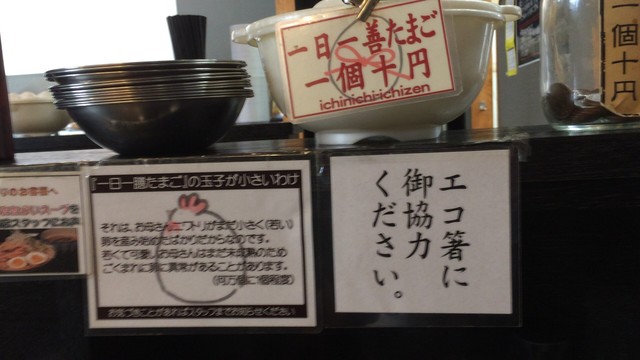 一日一善たまご
一個十円
ichinichi-ichizen
一個十円
『一日一膳たまご』の玉子が小さいわけ
それは、お母さんニワトリがまだ小さく(若い)
卵を産み始めたばかりだからなのです。
若くて可愛いお母さんはまだ未成熟のため
ごくまれに卵に異常があることがあります。
(何万個に1個程度)
お気づきことがあればスタッフまでお知らせください
エコ箸に
御協力
ください。
りのお客様へ